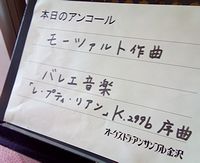 本日のアンコール
モーツァルト作曲
バレエ音楽
「レ・プティ・リアン」K.299b 序曲
オーケストラ・アンサンブル金沢